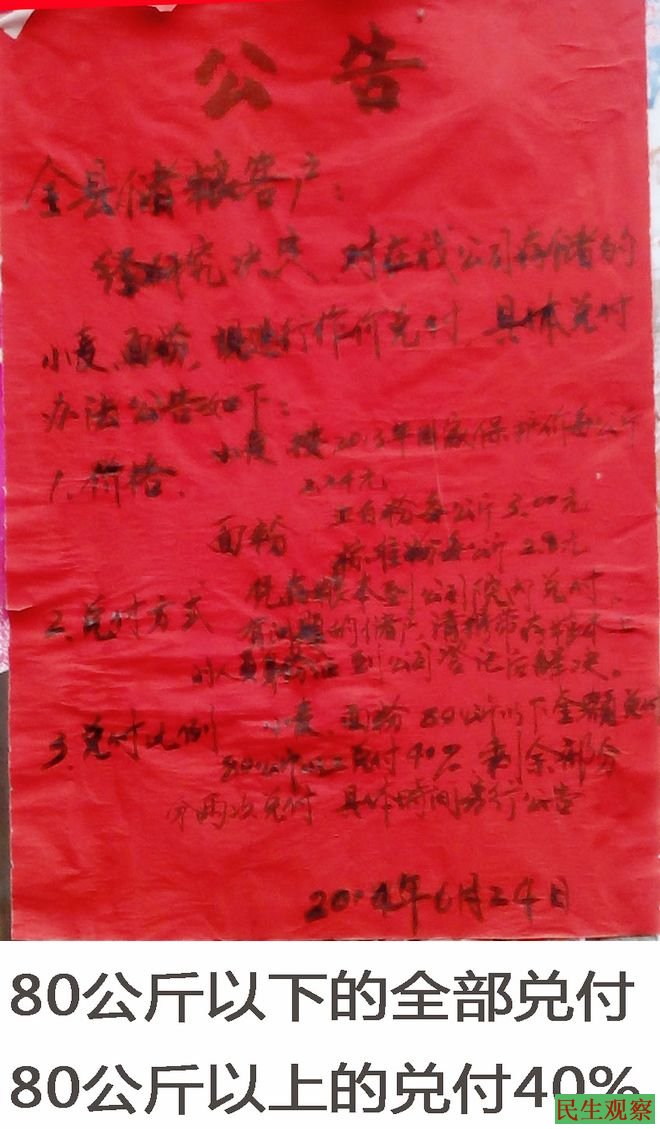 公告
全县储粮客户：
经研究决定，对在我公司存储的
小麦、面粉，现进行作价兑付，具体兑付
办法公告如下：
1.价格、小麦按2013年国家保护价每公斤
2.24元
面粉 上白粉每公斤3.00元
标准粉每公斤2.8元
2.兑付方式 凭存粮本到公司院内兑付、
有问题的储户，请携带存
的人员身份证到公司登记后解决。
3.兑付比例 小麦、面粉80公斤以下全额兑付
80公斤以上兑付40% 剩余部分
分两次兑付 具体时间另行公告
2014年6月24日
80公斤以下的全部兑付
80公斤以上的兑付40%
民生观察